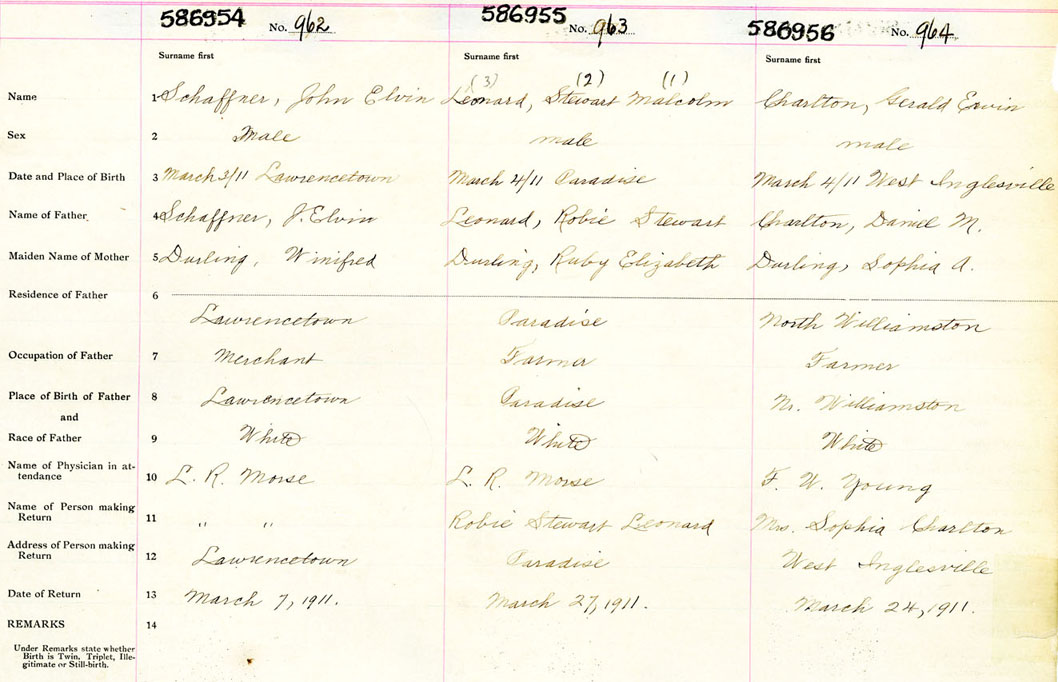 586954 No. 962 586955 No. 963 586956 No. 964
Surname first Surname first Surname first
(3) (2) (1)
Name 1 Schaffner, John Elvin Leonard, Stewart Malcolm Charlton, Gerald Ervin
Sex 2 Male male male
Date and Place of Birth 3 March 3/11 Lawrencetown March 4/11 Paradise March 4/11 West Inglesville
Name of Father 4 Schaffner, J. Elvin Leonard, Robie Stewart Charlton, Daniel M.
Maiden Name of Mother 5 Durling, Winifred Durling, Ruby Elizabeth Durling, Sophia A.
Residence of Father 6
Lawrencetown Paradise North Williamston
Occupation of Father 7 Merchant Farmer Farmer
Place of Birth of Father 8 Lawrencetown Paradise N. Williamston
and
Race of Father 9 White White White
Name of Physician in at-
tendance 10 L. R. Morse L. R. Morse F. W. Young
Name of Person making
Return 11 " " Robie Stewart Leonard Mrs. Sophia Charlton
Address of Person making
Return 12 Lawrencetown Paradise West Inglesville
Date of Return 13 March 7, 1911. March 27, 1911. March 24, 1911.
REMARKS 14
Under Remarks state whether
Birth is Twin, Triplet, Ille-
gitimate or Still-birth.